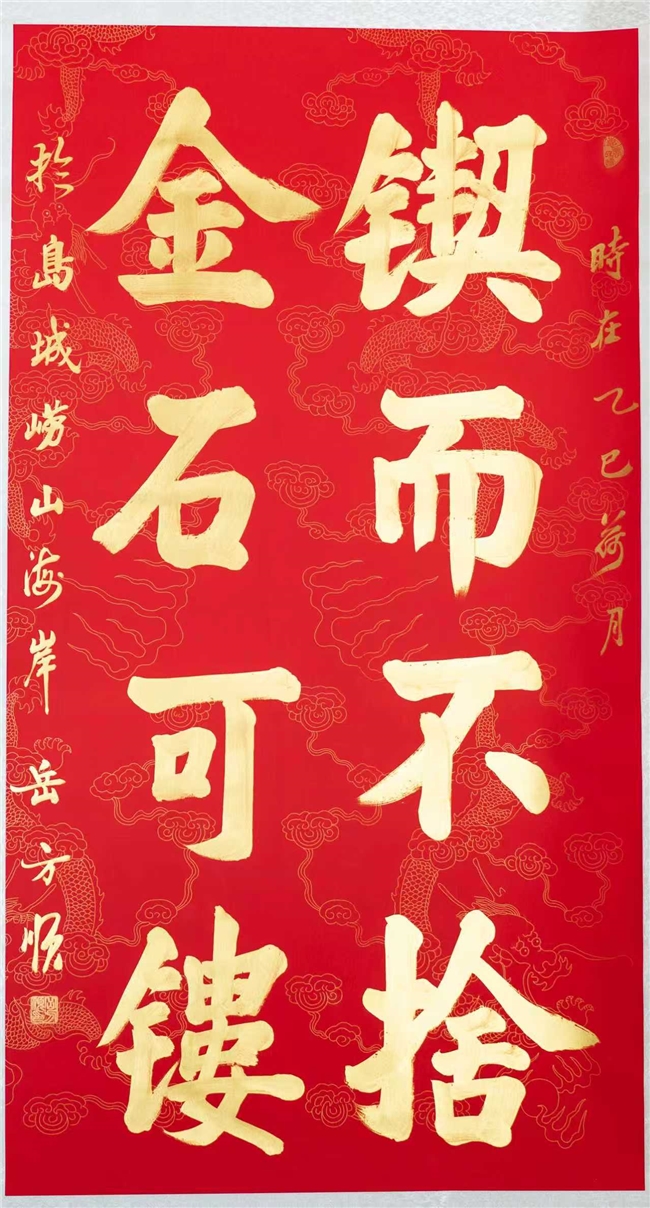 時在乙巳荷月
锲而不捨
金石可镂
於島城崂山海岸岳方顺